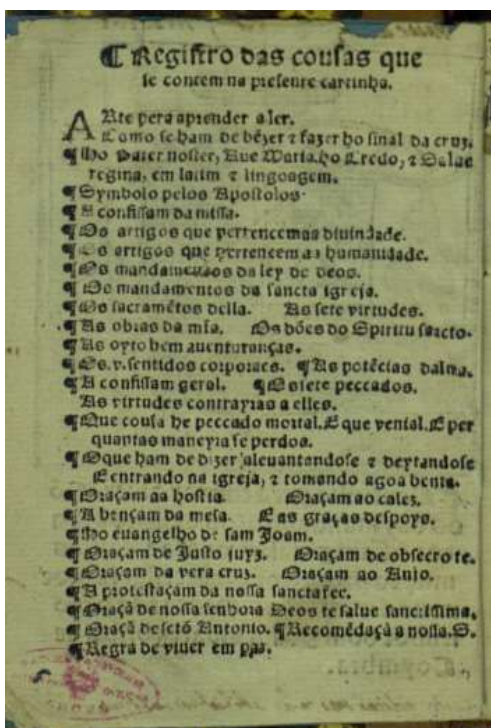 ¶ Registro das cousas que
se contem na presente cartinha.
ARte pera aprender a ler.
Como se ham de bẽzer ⁊ fazer ho sinal da cruz.
¶ Ho Pater noster, Aue Maria. ho Credo, ⁊ Salue
regina, em latim ⁊ lingoagem.
¶ Symbolo pelos Apostolos.
¶ A confissam da missa.
¶ Os artigos que pertencem aa diuindade.
¶ Os artigos que pertencem aa humanidade.
¶ Os mandamentos da ley de deos.
¶ Os mandamentos da sancta igreja.
¶ Os sacramẽtos della. As sete virtudes.
¶ As obras da mĩa. Os dões do Spiritu sancto.
¶ As oyto bem auenturanças.
¶ Os .v. sentidos corporaes. ¶ As potẽcias dalma.
¶ A confissam geral. ¶ Os sete peccados.
As virtudes contrayras a elles.
¶ Que cousa he peccado mortal. E que venial. E per
quantas maneyra se perdoa.
¶ O que ham de dizer aleuantandose ⁊ deytandose
E entrando na igreja, ⁊ tomando agoa benta.
¶ Oraçam aa hostia. Oraçam ao calez.
¶ A bençam da mesa. E as graças despoys.
¶ Ho euangelho de sam Joam.
¶ Oraçam de Justo juyz. Oraçam de obsecro te.
¶ Oraçam da vera cruz. Oraçam ao Anjo.
¶ A protestaçam da nossa sancta fee.
¶ Oraçã de nossa senhora Deos te salue sanctissima.
¶ Oraçã de sctõ Antonio. ¶ Recomẽdaçã a nossa .S.
¶ Regra de viuer em paz.